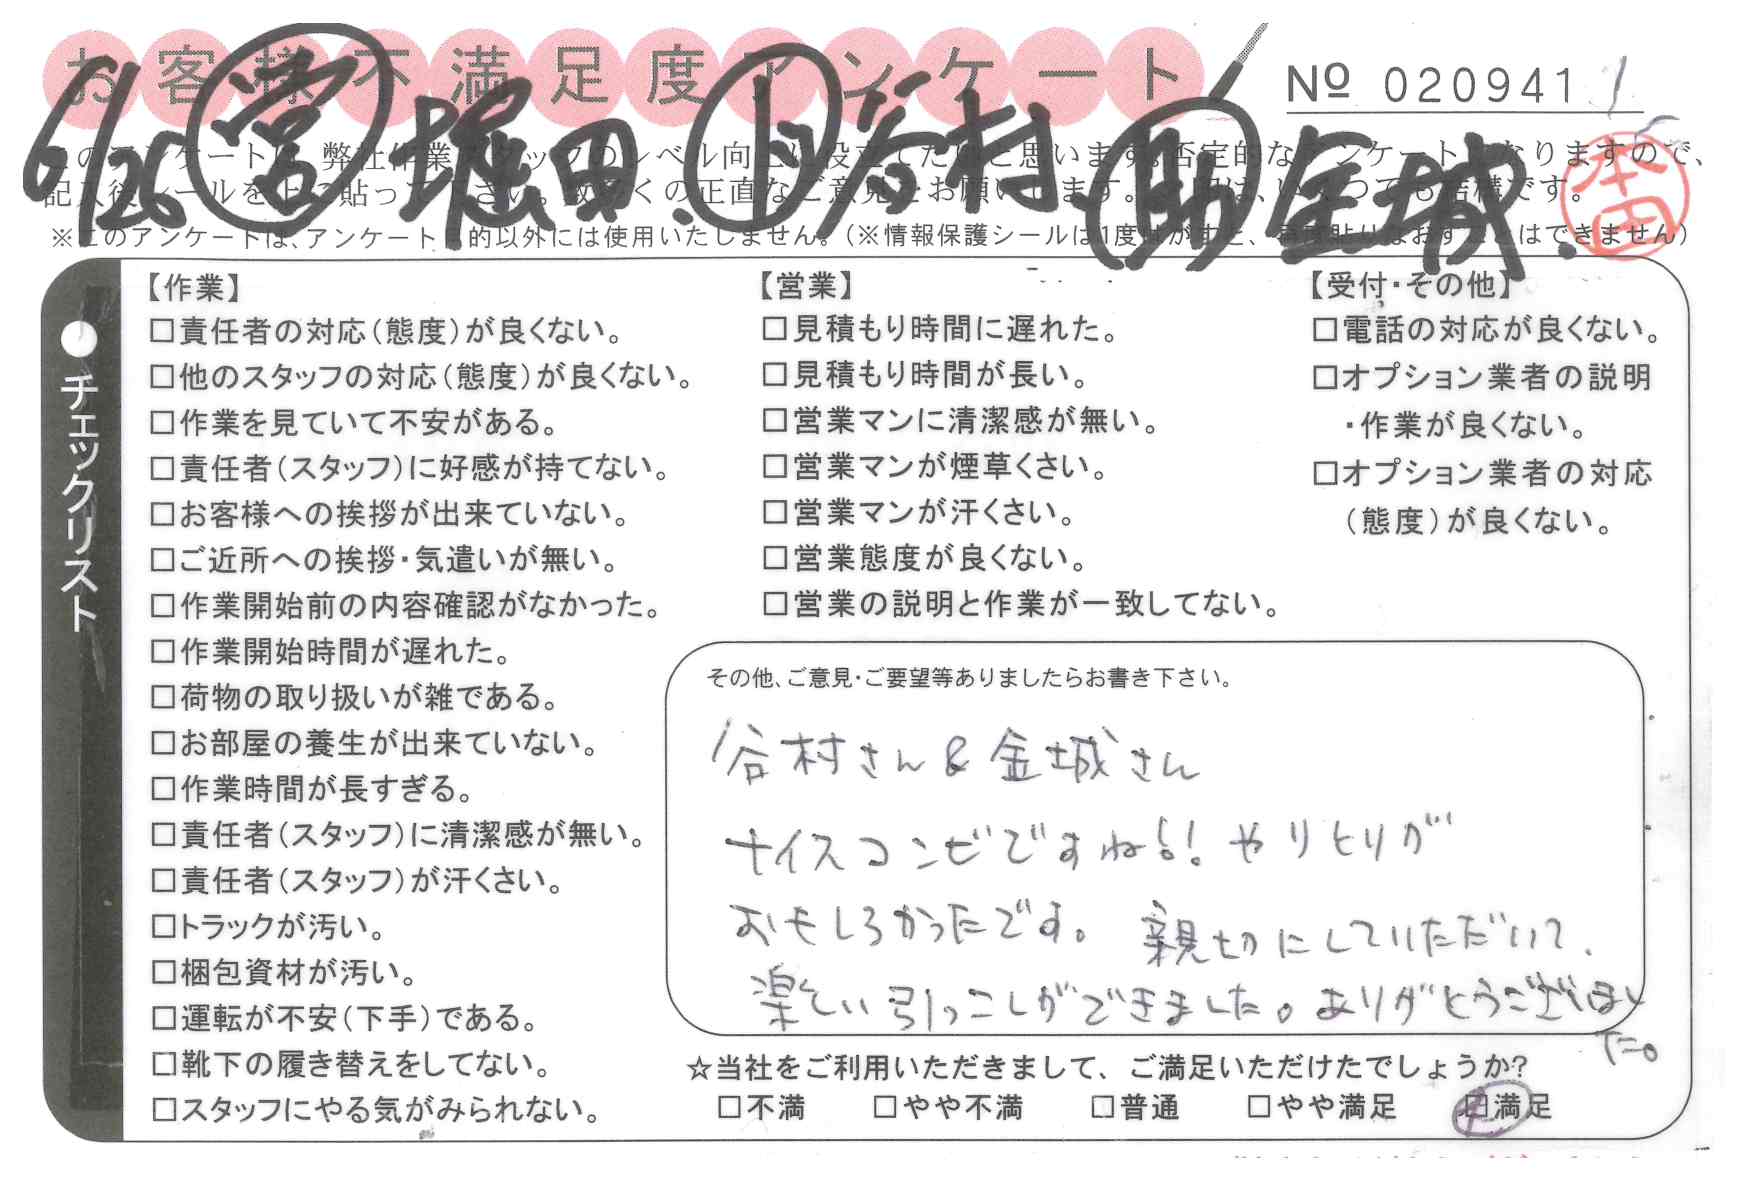 お客様不満足度アンケート
Nº 020941
6/26 営 堀田. 谷村. 助 金城.
このアンケートは、弊社作業スタッフのレベル向上に役立てたいと思います。否定的なアンケートとなりますので、
記入後シールを上に貼って下さい。数多くの正直なご意見をお願いします。
※このアンケートは、アンケート目的以外には使用いたしません。(※情報保護シールは1度はがすと、再度貼りなおすことはできません)
本田
●チェックリスト
【作業】
□責任者の対応(態度)が良くない。
□他のスタッフの対応(態度)が良くない。
□作業を見ていて不安がある。
□責任者(スタッフ)に好感が持てない。
□お客様への挨拶が出来ていない。
□ご近所への挨拶・気遣いが無い。
□作業開始前の内容確認がなかった。
□作業開始時間が遅れた。
□荷物の取り扱いが雑である。
□お部屋の養生が出来ていない。
□作業時間が長すぎる。
□責任者(スタッフ)に清潔感が無い。
□責任者(スタッフ)が汗くさい。
□トラックが汚い。
□梱包資材が汚い。
□運転が不安(下手)である。
□靴下の履き替えをしてない。
□スタッフにやる気がみられない。
【営業】
□見積もり時間に遅れた。
□見積もり時間が長い。
□営業マンに清潔感が無い。
□営業マンが煙草くさい。
□営業マンが汗くさい。
□営業態度が良くない。
□営業の説明と作業が一致してない。
【受付・その他】
□電話の対応が良くない。
□オプション業者の説明
・作業が良くない。
□オプション業者の対応
(態度)が良くない。
その他、ご意見・ご要望等ありましたらお書き下さい。
谷村さん&金城さん
ナイスコンビですね!! やりとりが
おもしろかったです。 親切にしていただいて、
楽しい引っこしができました。ありがとうございまし
た。
☆当社をご利用いただきまして、ご満足いただけたでしょうか?
□不満 □やや不満 □普通 □やや満足 □満足